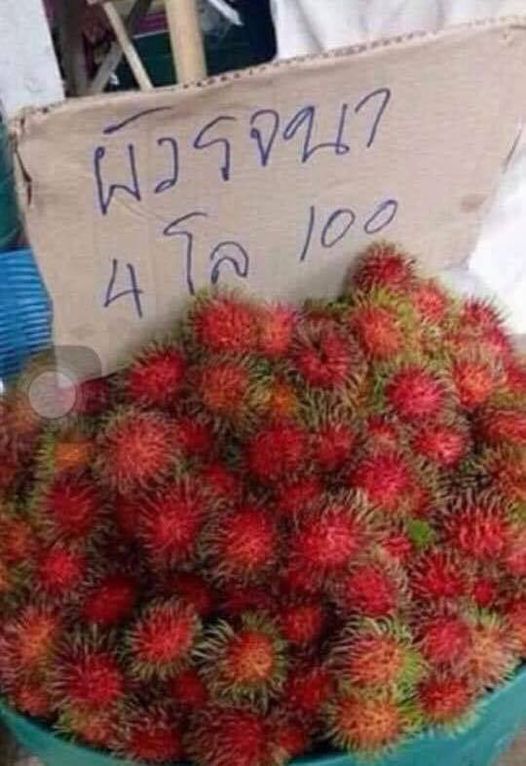 ผัวรจนา
4 โล 100